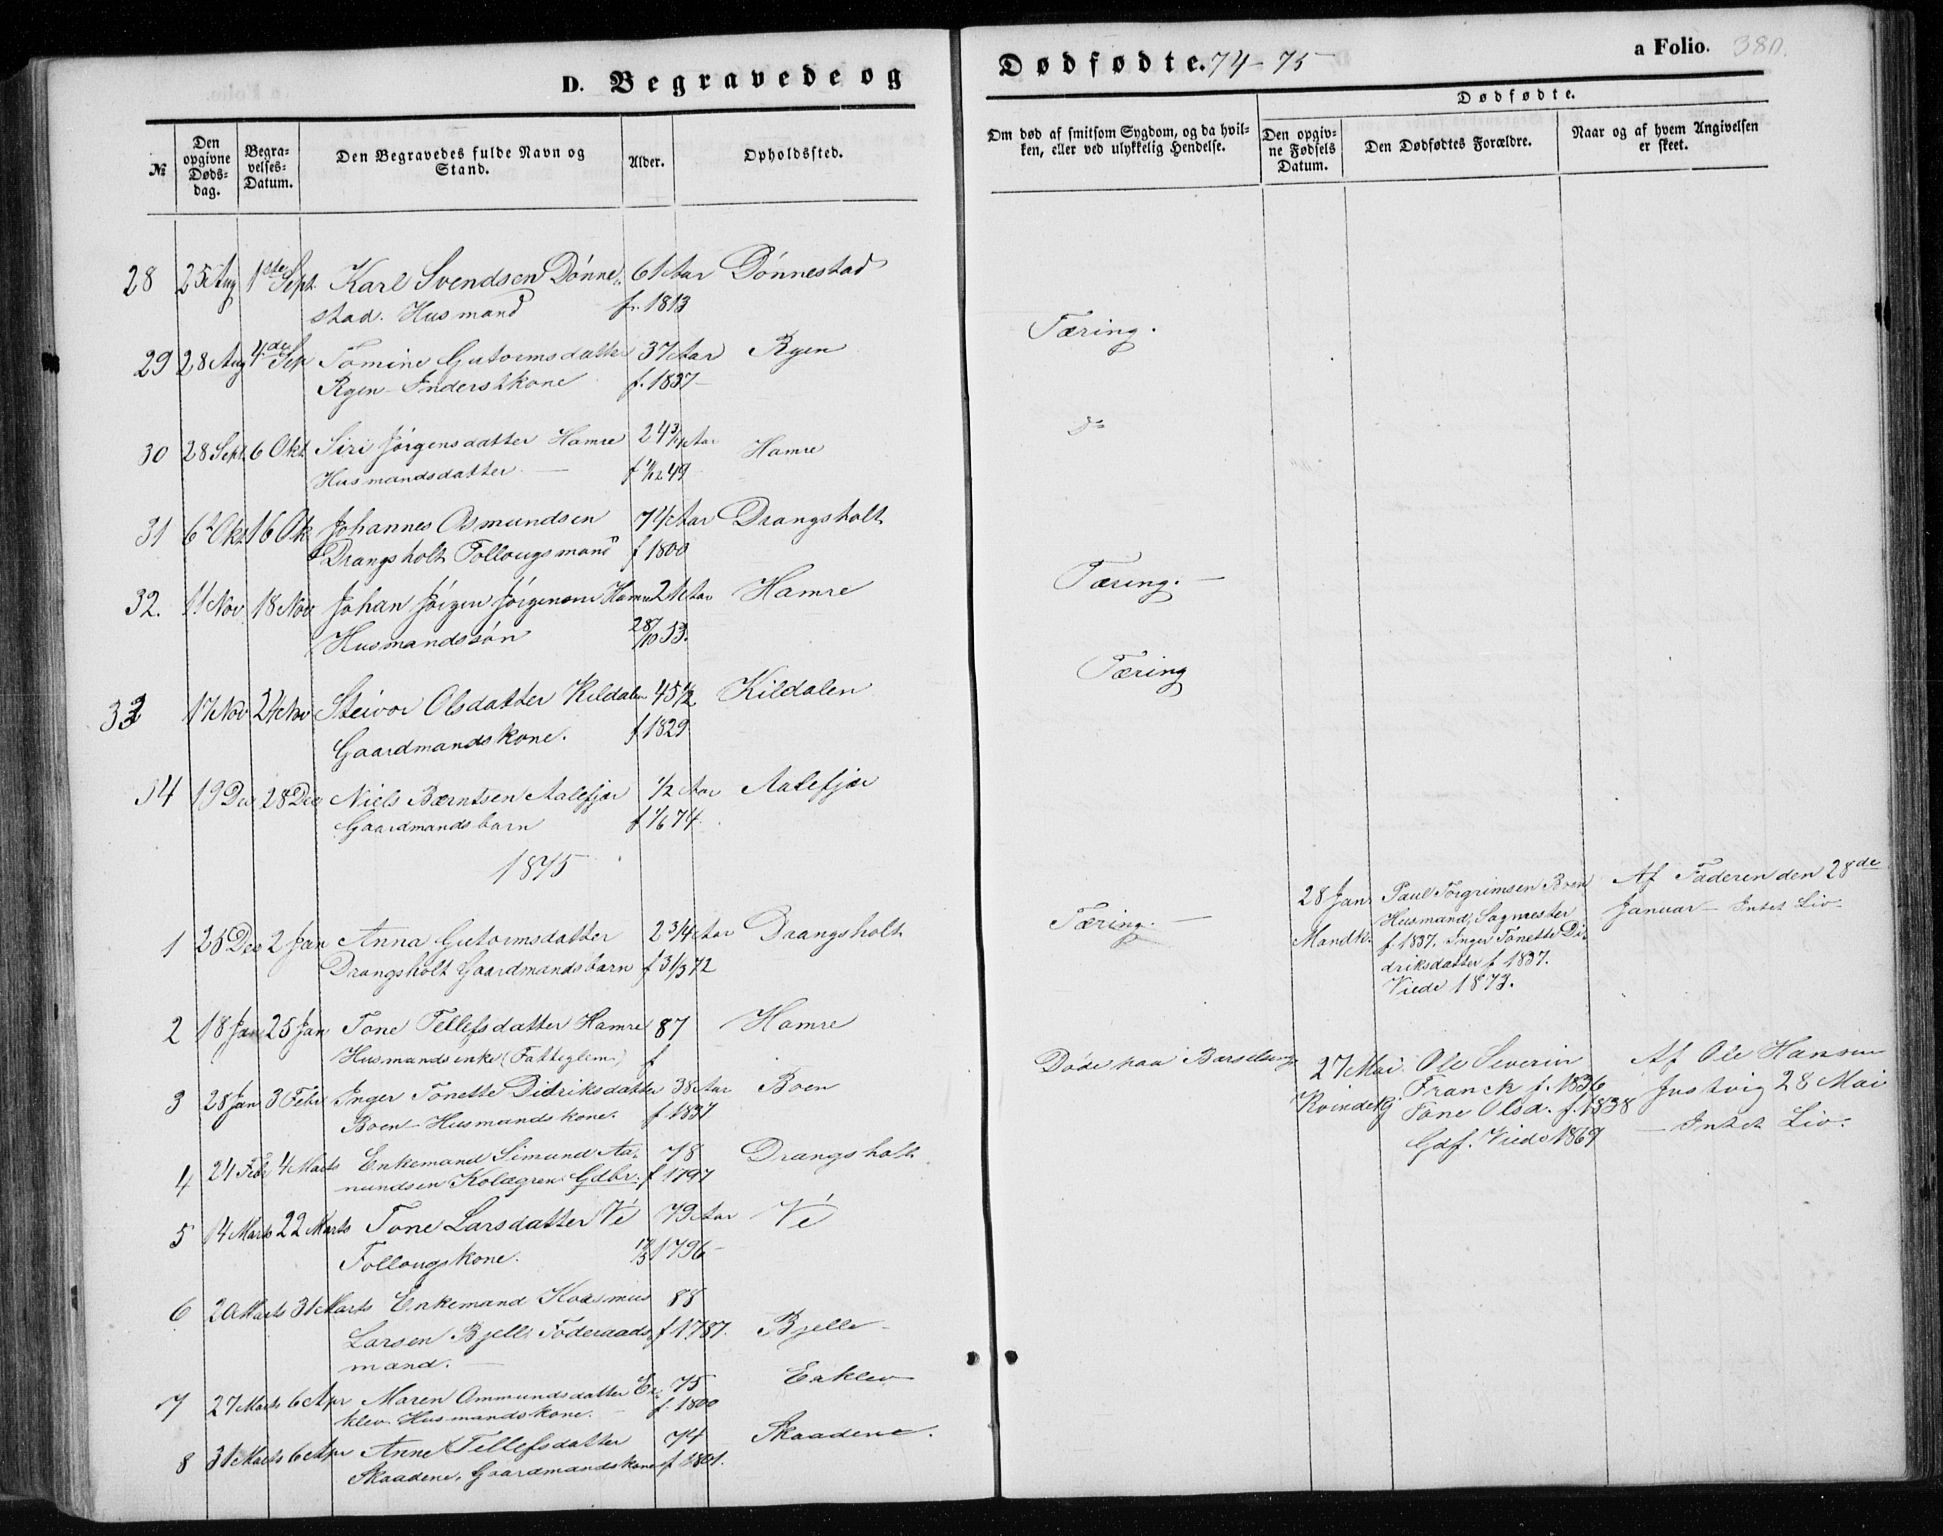 D. Begravede og
Dødfødte. 74-75
a Folio. 380.
№
Den opgivne Døds-dag.
Begra-velses-Datum.
Den Begravedes fulde Navn og Stand.
Alder.
Opholdssted.
Om død af smitsom Sygdom, og da hvil-ken, eller ved ulykkelig Hendelse.
Dødfødte.
Den opgiv-ne Fødsels Datum.
Den Dødfødtes Forældre.
Naar og af hvem Angivelsen er skeet.
28 25 Aug 1ste Sept. Karl Svendsen Dønne- 61 Aar Dønnestad
stad. Husmand f. 1813
29 28 Aug 4de Sep Tomine Gutormsdatter 37 Aar Ryen Tæring.
Ryen Inderstkone f. 1837
30 28 Sept. 6 Okt Siri Jørgensdatter Hamre 24 3/4 Aar Hamre do
Husmandsdatter f 49
31 6 Okt 16 Ok Johannes Osmundsen 74 Aar Drangsholt
Drangsholt Follougsmand f 1800
32. 11 Nov 18 Nov Johan Jørgen Jørgensen Hamre 21 Aar Hamre Tæring.
Husmandssøn 28/10 53.
33 17 Nov 24 Nov Steivor Olsdatter Kildalen 45 1/2 Kildalen Tæring
Gaardmandskone. f 1829
34 19 Dec 28 Dec Niels Bærntsen Aalefjær 1/2 Aar Aalefjær
Gaardmandsbarn f 1/6 74
1875
1 25 Dec 2 Jan Anna Gutormsdatter 2 3/4 Aar Drangsholt Tæring.
Drangsholt Gaardmandsbarn f 31/3 72
28 Jan Paul Torgrimsen Boen Af Faderen den 28de
Husmand, Sagmester Januar - Intet Liv
Mandk. f. 1837. Inger Tonette Di-
driksdatter f. 1837.
Viede 1873.
2 18 Jan 25 Jan Tone Tellefsdatter Hamre 87 Hamre
Husmandsenke (Fattiglem) f
3 28 Jan 3 Febr Inger Tonette Didriksdatter 38 Aar Boen Døde paa Barselseng
Boen - Husmandskone. f. 1837
27 Mai Ole Severin Af Ole Hansen
Franck f. 1836 Justvig 28 Mai
Kvindekj Tone Olsd. f. 1838 - Intet Liv.
Gdf. Viede 1869
4 24 Febr 4 Marts Enkemand Simund Aa- 78 Drangsholt
nundsen Gdbr. f 1797
5 14 Marts 22 Marts Tone Larsdatter Vé 79 Aar Vé
Follougskone. 1796
6 20 Marts 31 Marts Enkemand Kosmus 88
Larsen Bjelle Føderaads- f 1787. Bjelle
mand.
7 27 Marts 6 Apr Maren Ommundsdatter Ek- 75 Eaklev
klev Husmandskone. f. 1800
8 31 Marts 6 Apr Anne Tellefsdatter 74 Skaadene.
Skaadene, Gaardmandskone f 1801.